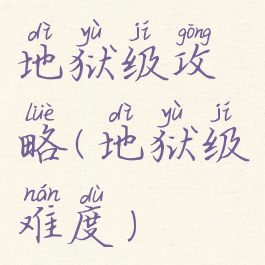 dì yù jí gōng
地狱级攻
lüè dì yù jí
略(地狱级
nán dù
难度)